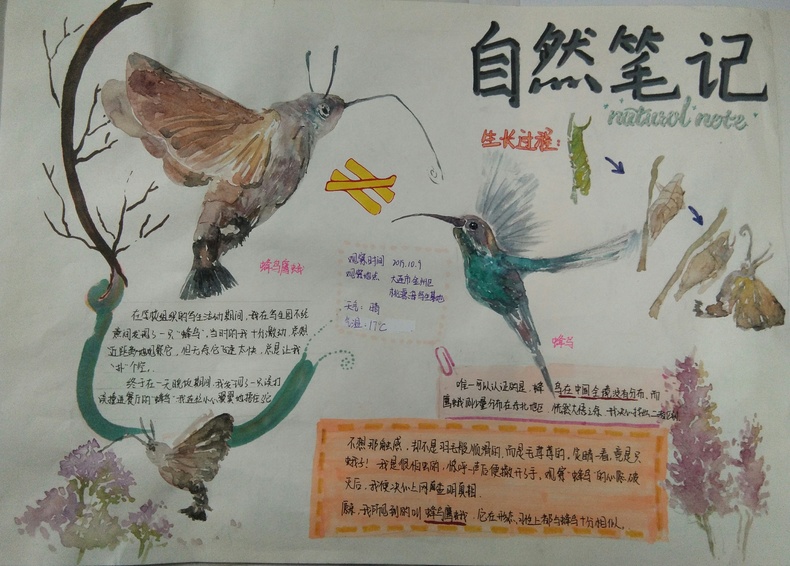 自然笔记
natural note
生长过程:
蜂鸟鹰蛾
观察时间 2015.10.9
观察地点 大连市金州区
天气: 晴
气温: 17℃
蜂鸟
在学校组织的学生活动期间,我在学生园不经
意间发现了一只“蜂鸟”,当时的我十分激动,总想
近距离地观察它,但无奈它飞速太快,总是让我
“扑”个空。
终于在一天晚饭期间,我发现了一只误打
误撞进餐厅的“蜂鸟”
唯一可以认证的是 蜂鸟在中国全境没有分布,而
鹰蛾则少量分布在东北地区
不想那触感,却不是羽毛般顺滑的,而是毛茸茸的,定睛一看,竟是只
蛾子!我是很怕虫的,惊呼一声后便撒开了手,观察“蜂鸟”的心愿破
灭后,我便决心上网查明真相.
原来,我所见到的叫 蜂鸟鹰蛾,它在形态,习性上都与蜂鸟十分相似。